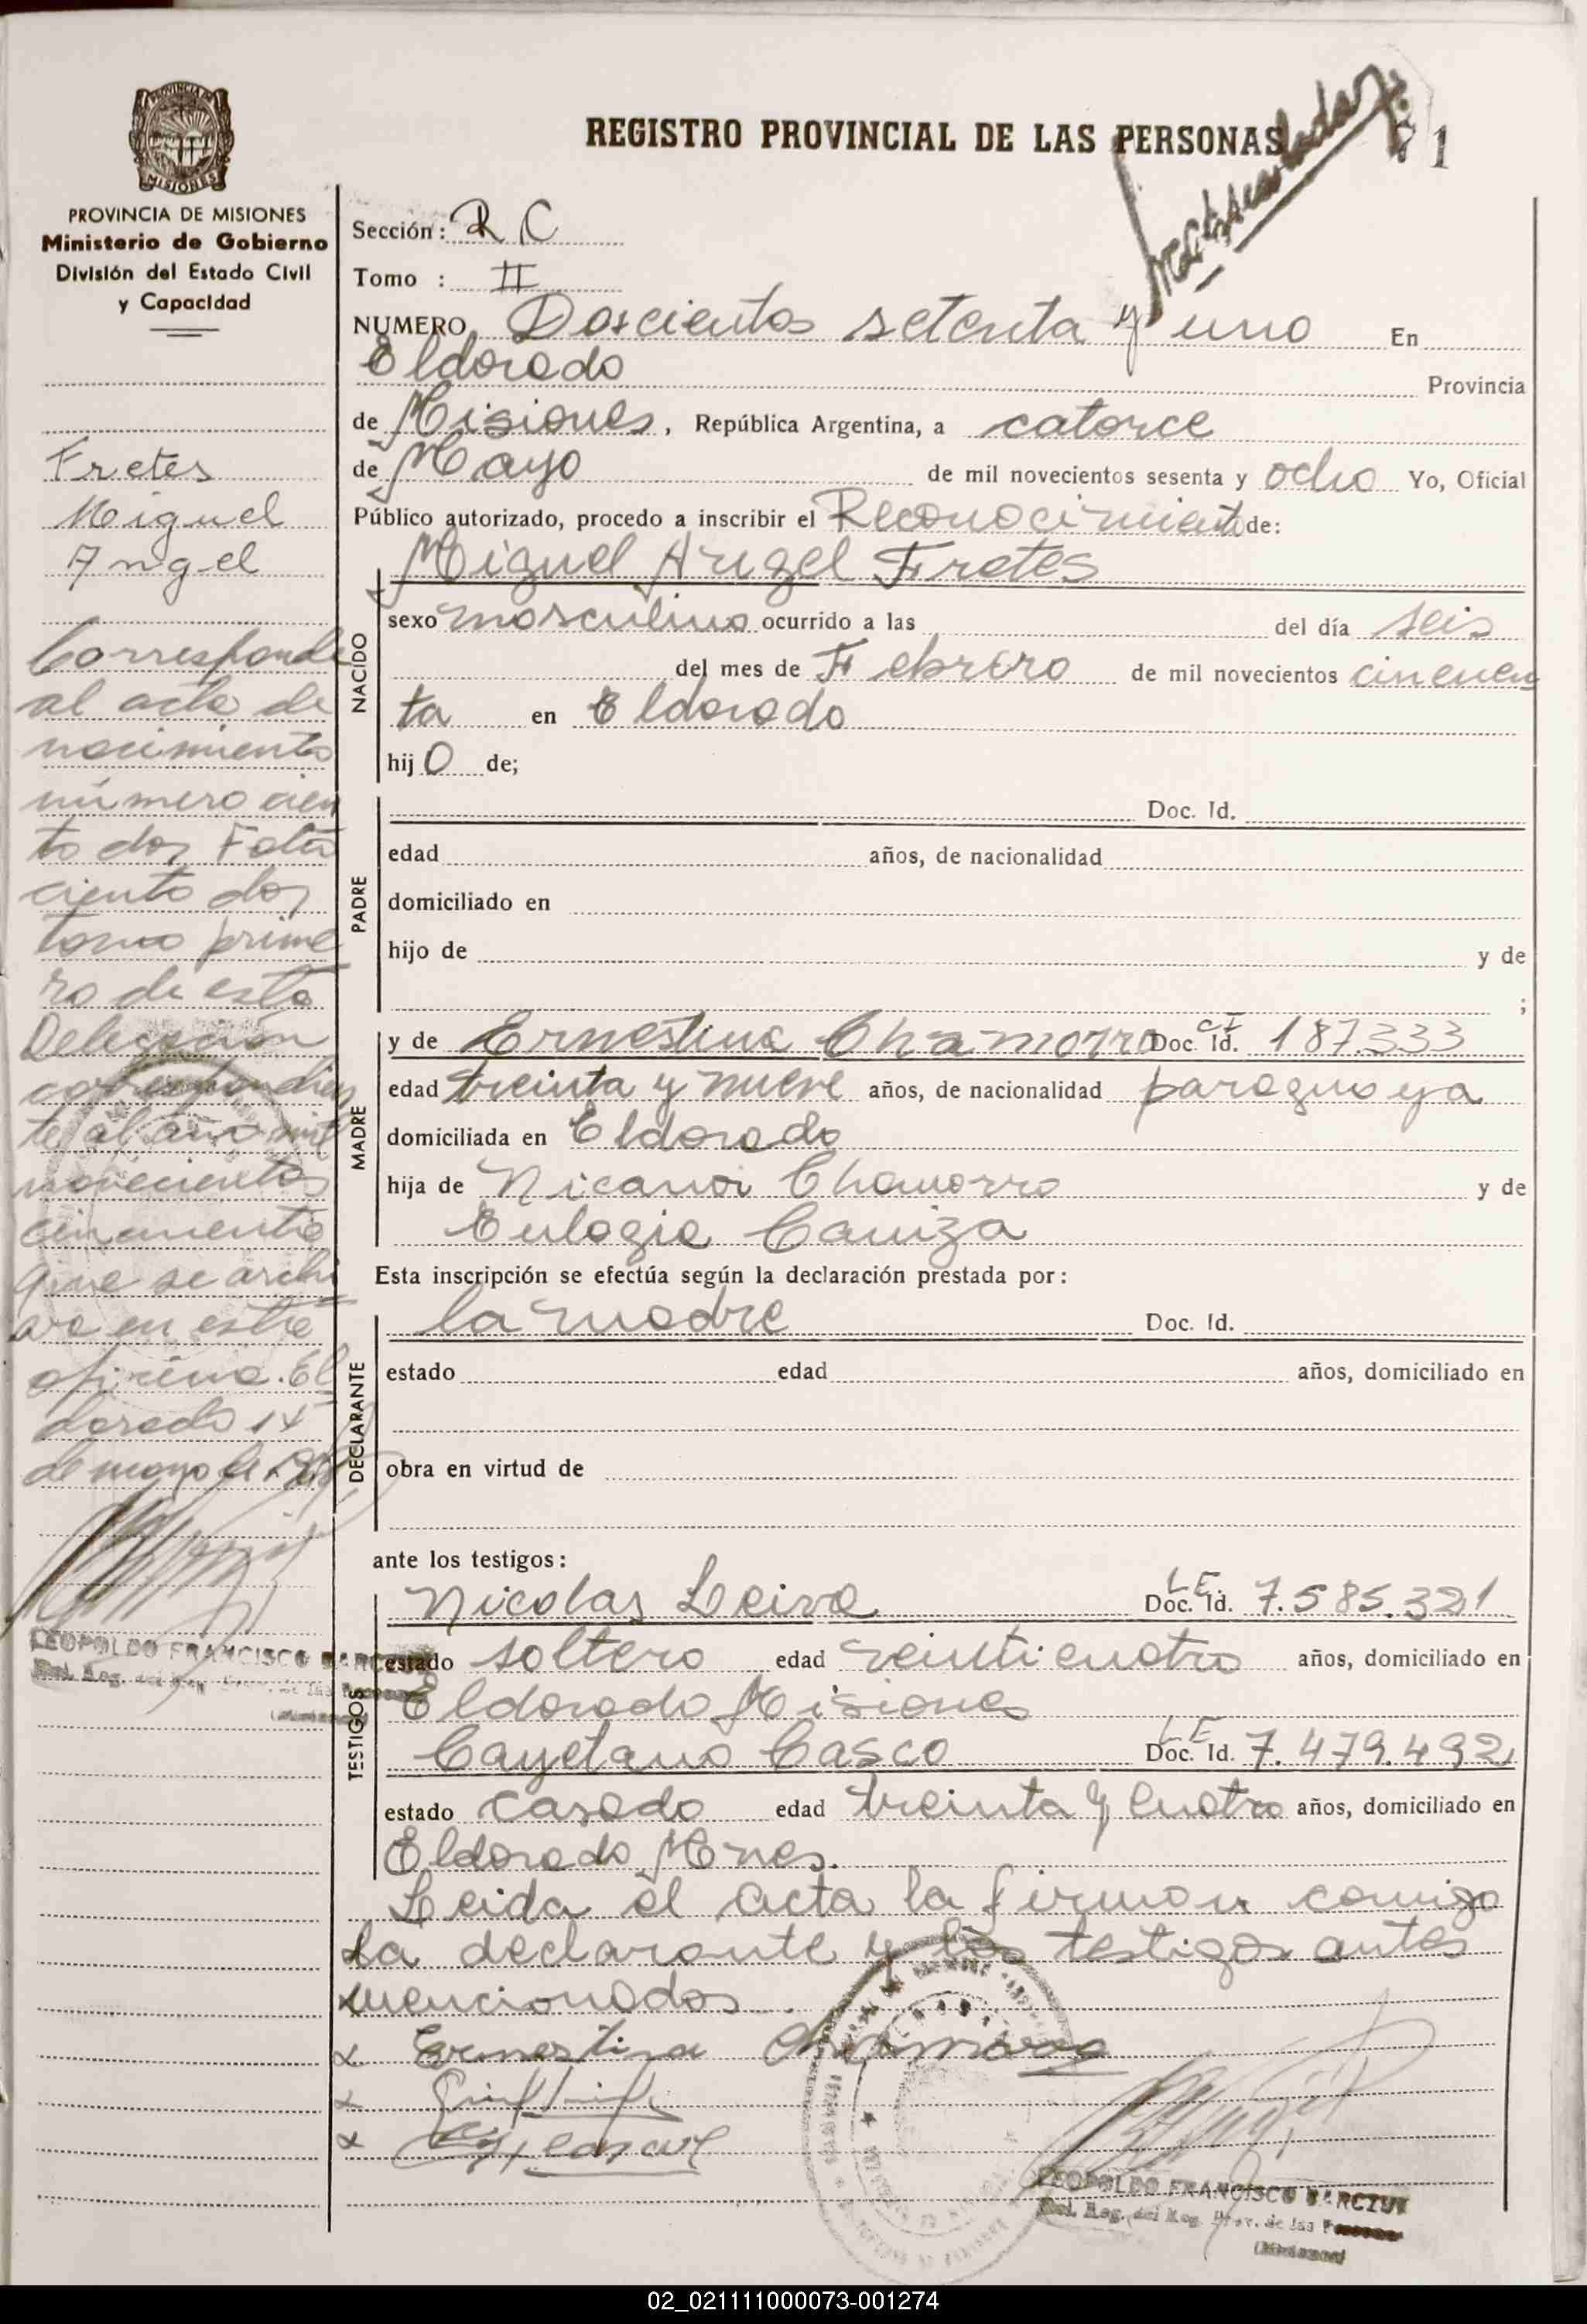 REGISTRO PROVINCIAL DE LAS PERSONAS
71
PROVINCIA DE MISIONES
MISIONES
PROVINCIA DE MISIONES
Ministerio de Gobierno
División del Estado Civil
y Capacidad
Fretes
Miguel
Angel
Corresponde
al acta de
nacimiento
número cien
to dos Folio
ciento dos
tomo prime
ro de esta
Delegación
correspondien
te al año mil
novecientos
cincuenta
que se archi
va en esta
oficina. El
dorado 14
de mayo de
LEOPOLDO FRANCISCO
Sección: R C
Tomo : II
NUMERO Doscientos setenta y uno En
Eldorado Provincia
de Misiones, República Argentina, a catorce
de Mayo de mil novecientos sesenta y ocho Yo, Oficial
Público autorizado, procedo a inscribir el Reconocimiento de:
Miguel Angel Fretes
NACIDO
sexo masculino ocurrido a las del día seis
del mes de Febrero de mil novecientos cincuen
ta en Eldorado
hijo de;
PADRE
Doc. Id.
edad años, de nacionalidad
domiciliado en
hijo de y de
;
MADRE
y de Ernestina Chamorro Doc. Id. CI 187.333
edad treinta y nueve años, de nacionalidad paraguaya
domiciliada en Eldorado
hija de Nicanor Chamorro y de
Eulogia Caniza
Esta inscripción se efectúa según la declaración prestada por:
DECLARANTE
la madre Doc. Id.
estado edad años, domiciliado en
obra en virtud de
ante los testigos:
TESTIGOS
Nicolas Leiva Doc. Id. L E 7.585.321
estado soltero edad veinticuatro años, domiciliado en
Eldorado Misiones
Cayetano Casco Doc. Id. L E 7.479.492
estado casado edad treinta y cuatro años, domiciliado en
Eldorado Mnes.
Leida el acta la firman conmigo
la declarante y los testigos antes
mencionados.
x Ernestina Chamorro
x
x
LEOPOLDO FRANCISCO
02_021111000073-001274